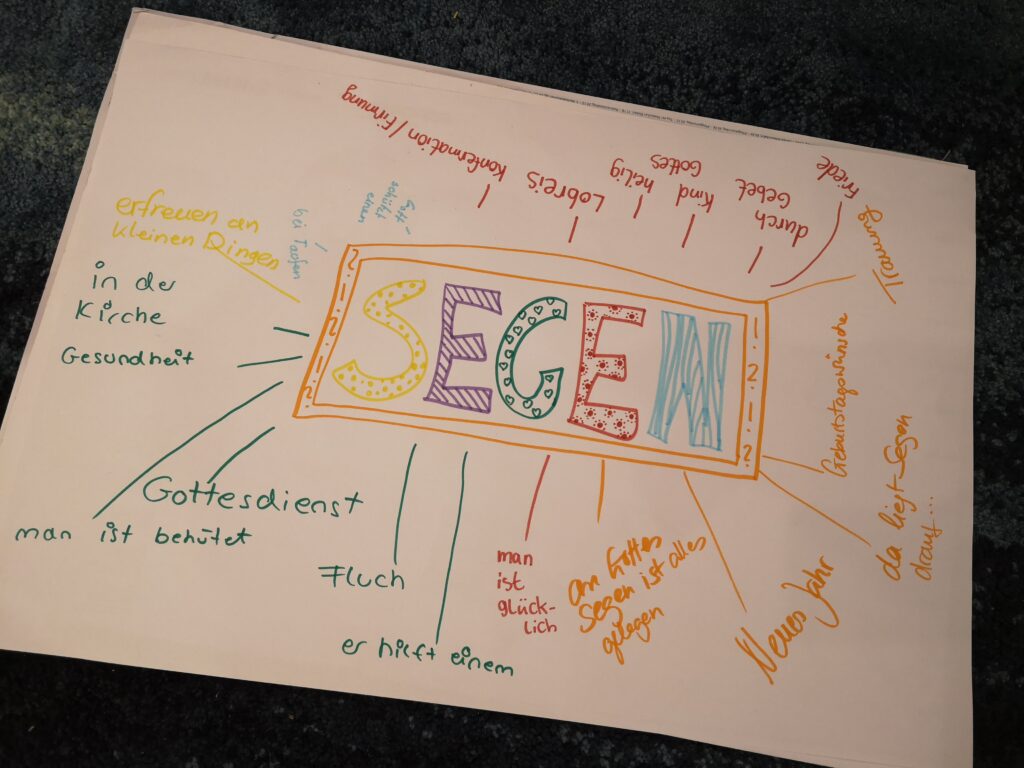 SEGEN
Konfermation / Firmung
Lobreis
heilig
Kind
Gottes
durch
Gebet
Friede
Trauung
Geburtstagswünsche
da liegt Segen
drauf...
Neues Jahr
an Gottes
Segen ist alles
gelegen
man
ist
glück-
lich
er hilft einem
Fluch
Gottesdienst
man ist behütet
Gesundheit
in der
Kirche
erfreuen an
kleinen Dingen
bei Taufen
schützt
einen